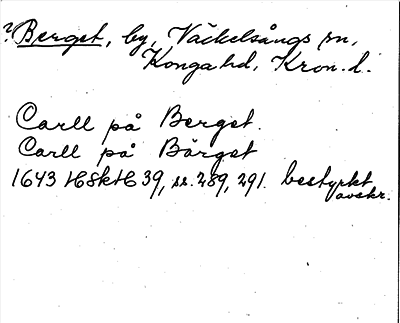 ? Berget, by, Väckelsångs sn,
Konga hd, Kron. l.
Carll på Berget.
Carll på Bärget
1643 HSkH 39, ss. 289, 291. bestyrkt
avskr.